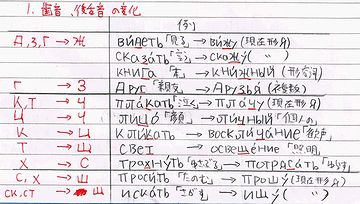 1. 歯音、後舌音の変化
例
Д,З,Г → Ж видеть「見る」→ вижу (現在形)
сказать「言う」→ скажу ( 〃 )
книга「本」→ книжный (形容詞)
Г → З друг「親友」→ друзья (複数)
К,Т → Ч плакать「泣く」→ плачу (現在形)
Ц → Ч лицо「顔」→ личный「個人の」
К → Ц кликать → восклицание「歓声」
Т → Щ свет → освещение「照明」
Х → С трахнуть → потрясать
С,Х → Ш просить「たのむ」→ прошу (現在形)
СК,СТ → Щ искать「さがす」→ ищу ( 〃 )